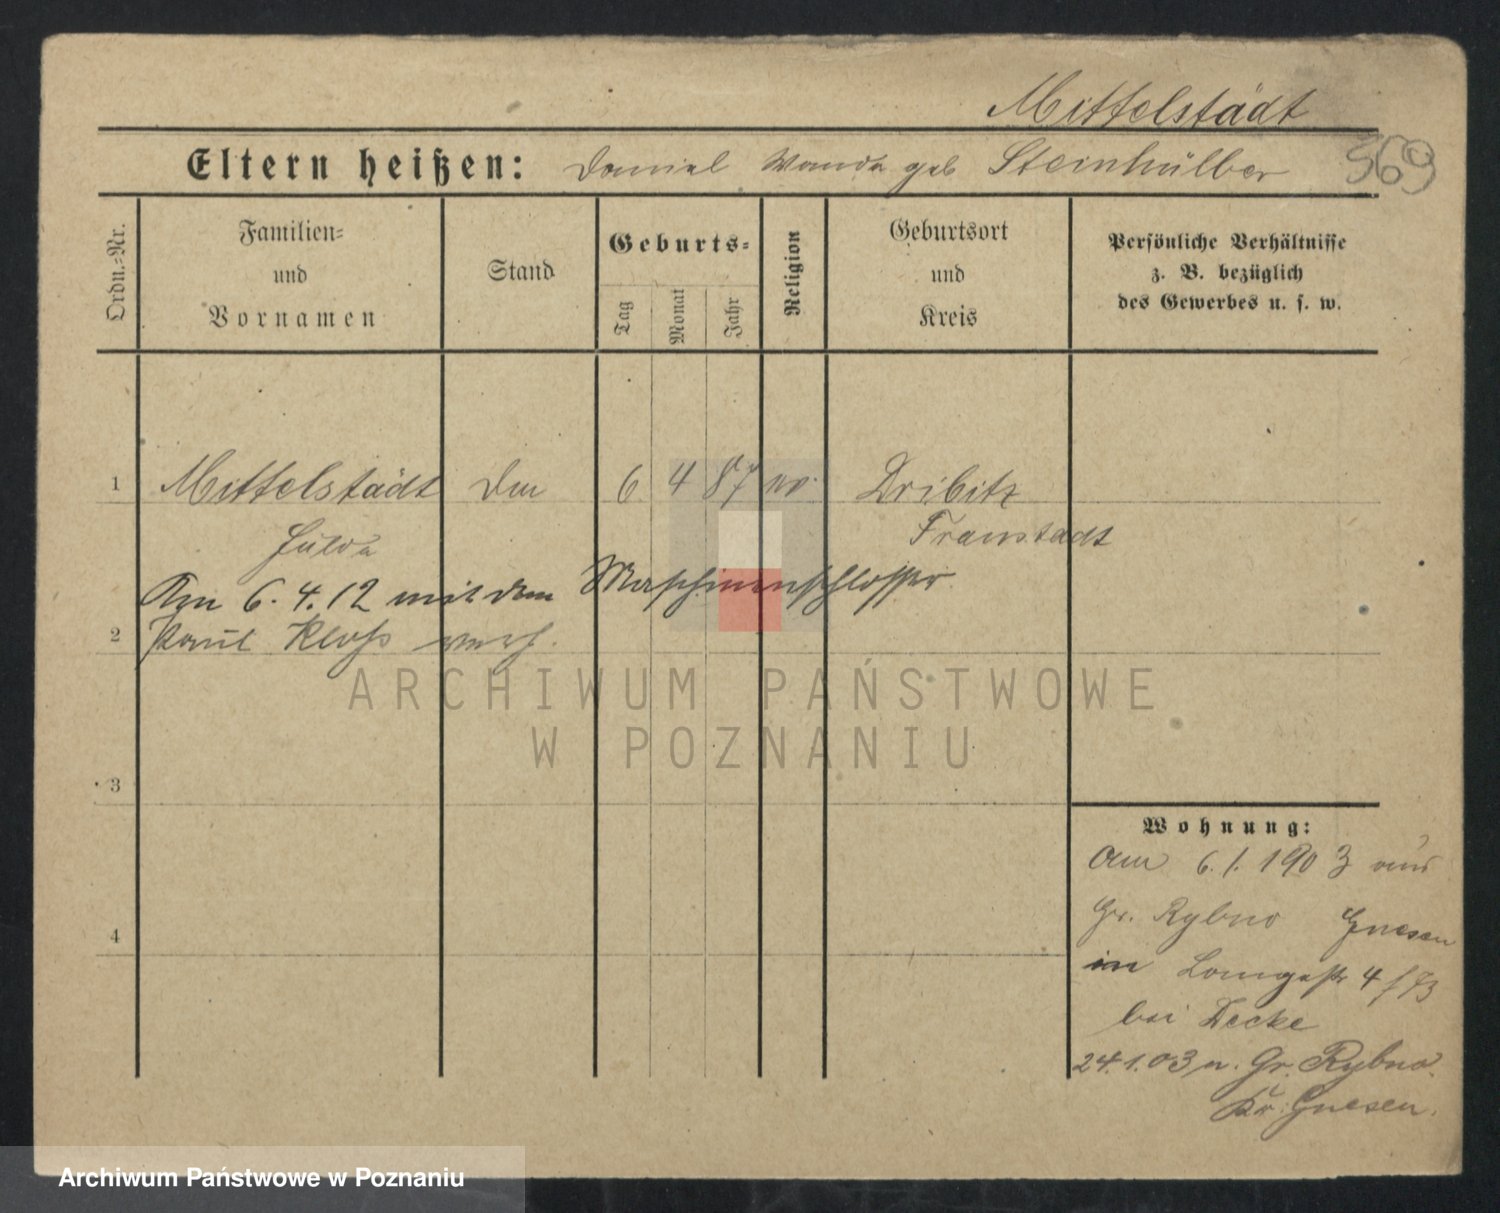 Mittelstädt
369
Eltern heißen: Daniel Wanda geb Steinhülber
Ordn.-Nr.
Familien-
und
Vornamen
Stand
Geburts-
Tag
Monat
Jahr
Religion
Geburtsort
und
Kreis
Persönliche Verhältnisse
z. B. bezüglich
des Gewerbes u. s. w.
1 Mittelstädt 6 4 87 ev. Dribitz
Hulda Fraustadt
Am 6.4.12 mit dem Maschinenschlosser
2 Paul Kloß verh.
ARCHIWUM PAŃSTWOWE
W POZNANIU
3
4
Wohnung:
Am 6.1.1903 aus
Gr. Rybno Gnesen
in Langestr 4
bei Decke
24.1.03 n. Gr. Rybno
Kr. Gnesen.
Archiwum Państwowe w Poznaniu